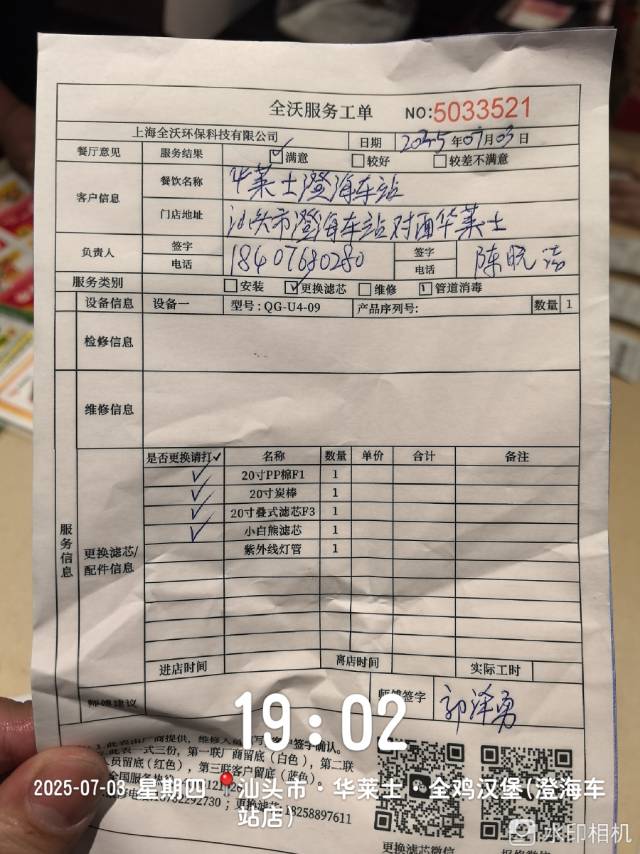 全沃服务工单 NO:5033521
上海全沃环保科技有限公司 日期 2025年07月03日
餐厅意见 服务结果 ☑满意 □较好 □较差不满意
客户信息 餐饮名称 华莱士澄海车站
门店地址 汕头市澄海车站对面华莱士
负责人 签字 电话 18407680280 签字 电话 陈晓
服务类别 □安装 ☑更换滤芯 □维修 □管道消毒
设备信息 设备一 型号:QG-U4-09 产品序列号: 数量 1
检修信息
维修信息
服务信息
更换滤芯/配件信息
是否更换请打✓ 名称 数量 单价 合计 备注
✓ 20寸PP棉F1 1
✓ 20寸炭棒 1
✓ 20寸叠式滤芯F3 1
✓ 小白熊滤芯 1
紫外线灯管 1
进店时间 离店时间 实际工时
师傅建议 师傅签字 郭泽勇
19:02
此表一式三份,第一联厂商留底(白色),第二联
人员留底(红色),第三联客户留底(蓝色)。
2025-07-03 星期四 汕头市·华莱士·全鸡汉堡(澄海车
站店)
更换滤芯:18258897611
更换滤芯微信
水印相机